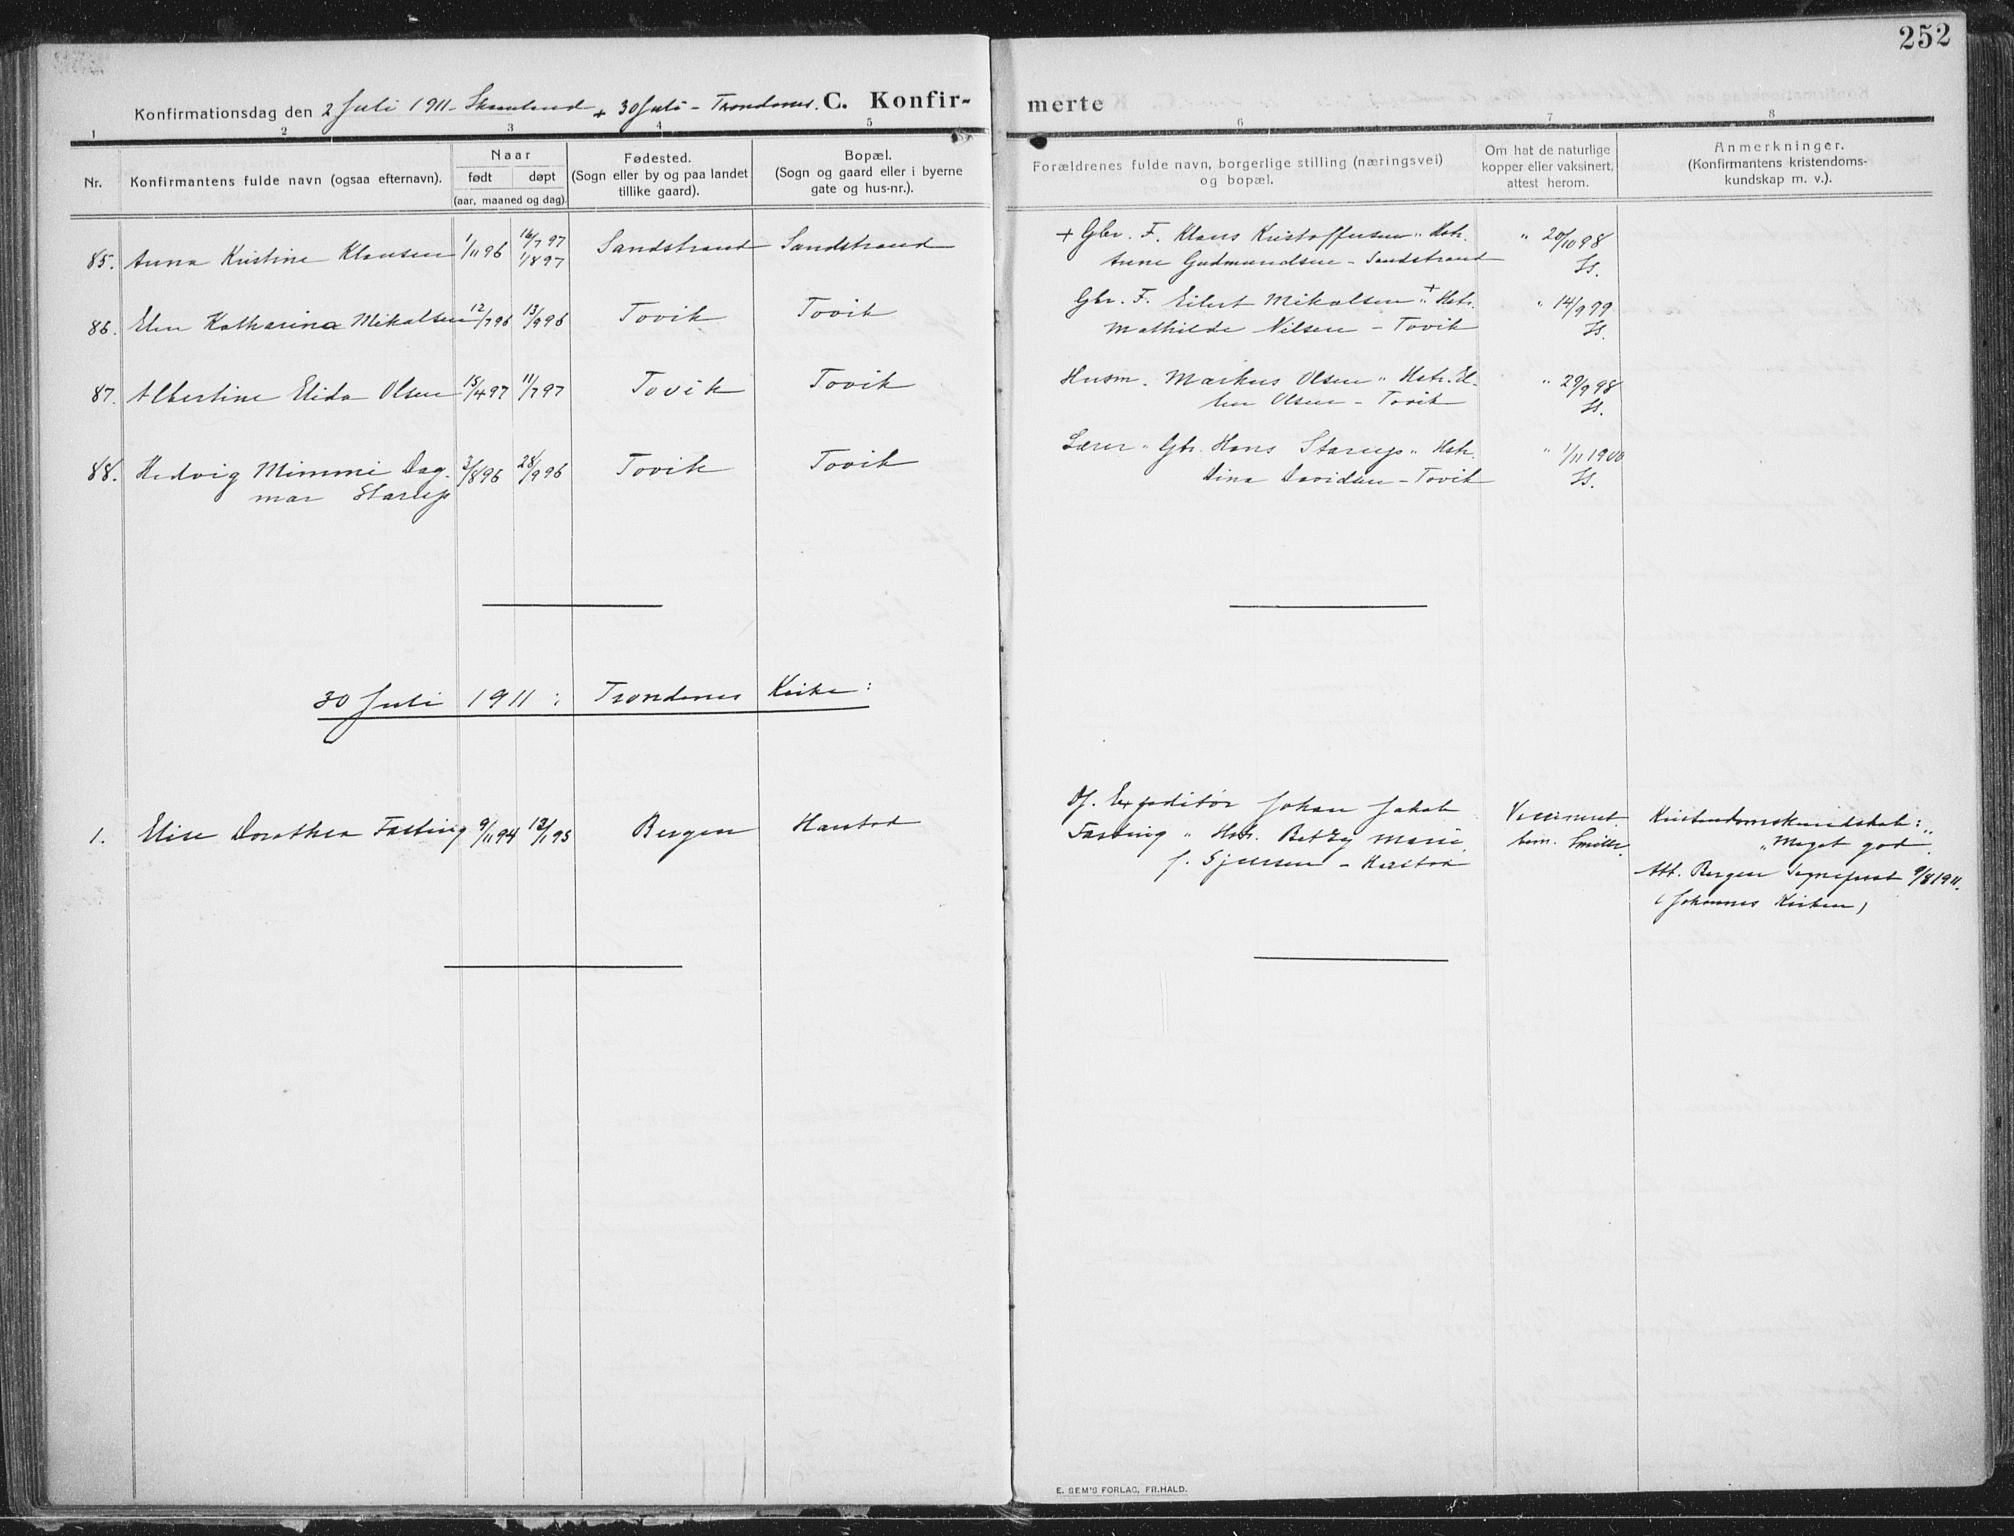 252
Konfirmationsdag den 2 Juli 1911 - + 30 Juli - Trondenes. C. Konfir-
merte
1 2 3 4 5 6 7 8
Nr.
Konfirmantens fulde navn (ogsaa efternavn).
Naar
født døpt
(aar, maaned og dag).
Fødested.
(Sogn eller by og paa landet
tillike gaard).
Bopæl.
(Sogn og gaard eller i byerne
gate og hus-nr.).
Forældrenes fulde navn, borgerlige stilling (næringsvei)
og bopæl.
Om hat de naturlige
kopper eller vaksinert,
attest herom.
Anmerkninger.
(Konfirmantens kristendoms-
kundskap m. v.).
85. Anna Kristine Klausen 1/11 96 16/7 97 1/8 97 Sandstrand Sandstrand
+ Gbr. F. Klaus Kristoffersen " Hstr. " 20/10 98
Anne Gudmundsen - Sandstrand
86. Elen Katharina Mikalsen 12/7 96 13/9 96 Tovik Tovik
Gbr. F. Eilert Mikalsen " + Hstr. " 14/9 99
Mathilde Nilsen - Tovik
87. Albertine Elida Olsen 15/4 97 11/7 97 Tovik Tovik
Husm. Markus Olsen " Hstr. El- " 29/9 98
len Olsen - Tovik
88. Hedvig Mimmi Dag- 3/8 96 28/9 96 Tovik Tovik
mar Starup
Lærer " Gbr. Hans Starup " Hstr. " 1/11 1900
Dina Davidsen - Tovik
30 Juli 1911 : Trondenes Kirke :
1. Elise Dorothea Fasting 9/11 94 12/1 95 Bergen Harstad
Df. Expeditør Johan Jakob
Fasting " Hstr. Betzy Marie
f. - Harstad
Kristendomskundskab :
"Meget god".
Att. Bergen Sogneprest 9/8 1911.
(Johannes Kirken)
E. SEM'S FORLAG, FR.HALD.